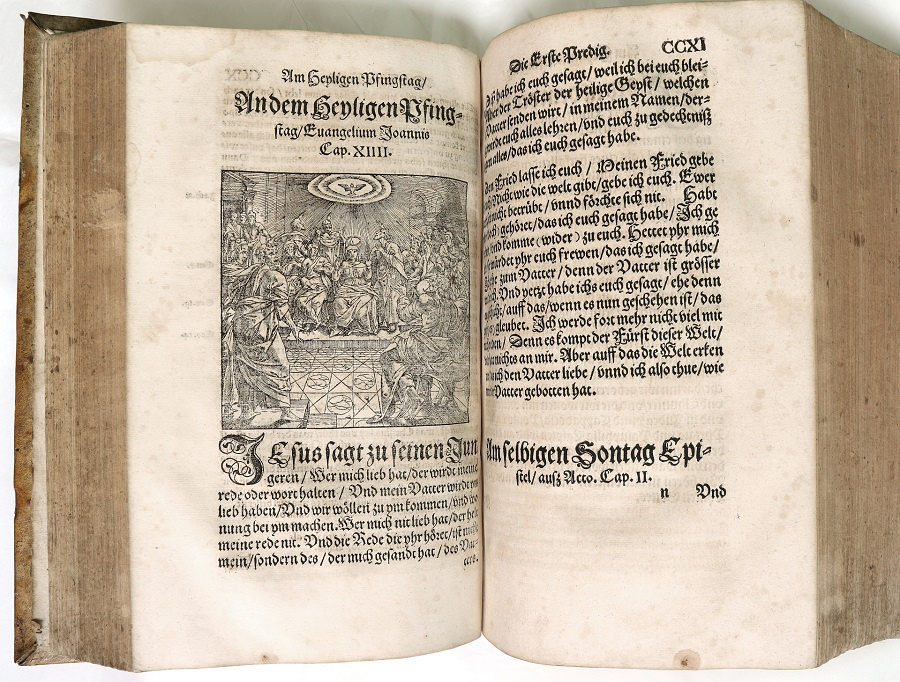 Am Heyligen Pfingstag/
An dem Heyligen Pfing-
stag/Euangelium Joannis
Cap. XIIII.
JEsus sagt zu seinen Jun
geren/Wer mich lieb hat/der wirdt meine
rede oder wort halten/Vnd mein Vatter wirdt
lieb haben/Vnd wir wölleñ zu ym kommen/vnd
nung bei ym machen. Wer mich nit lieb hat/der
meine rede nit. Vnd die Rede die yhr höret/ist
mein/sondern des/der mich gesandt hat/des Vat-
Die Erste Predig.
CCXI
habe ich euch gesagt/weil ich bei euch blei-
der Tröster der heilige Geyst/welchen
Vatter senden wirt/in meinem Namen/der-
euch alles lehren/vnd euch zu gedechtniß
alles/das ich euch gesagt habe.
Fried lasse ich euch/Meinen Fried gebe
Nicht wie die welt gibt/gebe ich euch. Ewer
betrübt/vnnd förchte sich nit. Habt
gehöret/das ich euch gesagt habe/Ich ge
vnd komme (wider) zu euch. Hettet yhr mich
würdet yhr euch frewen/das ich gesagt habe/
zum Vatter/denn der Vatter ist grösser
Vnd yetzt habe ichs euch gesagt/ehe denn
auff das/wenn es nun geschehen ist/das
gleubet. Ich werde fort mehr nicht viel mit
Denn es kompt der Fürst dieser Welt/
nichts an mir. Aber auff das die Welt erken
ich den Vatter liebe/vnnd ich also thue/wie
Vatter gebotten hat.
Am selbigen Sontag Epi-
stel/auß Acto. Cap. II.
n Vnd